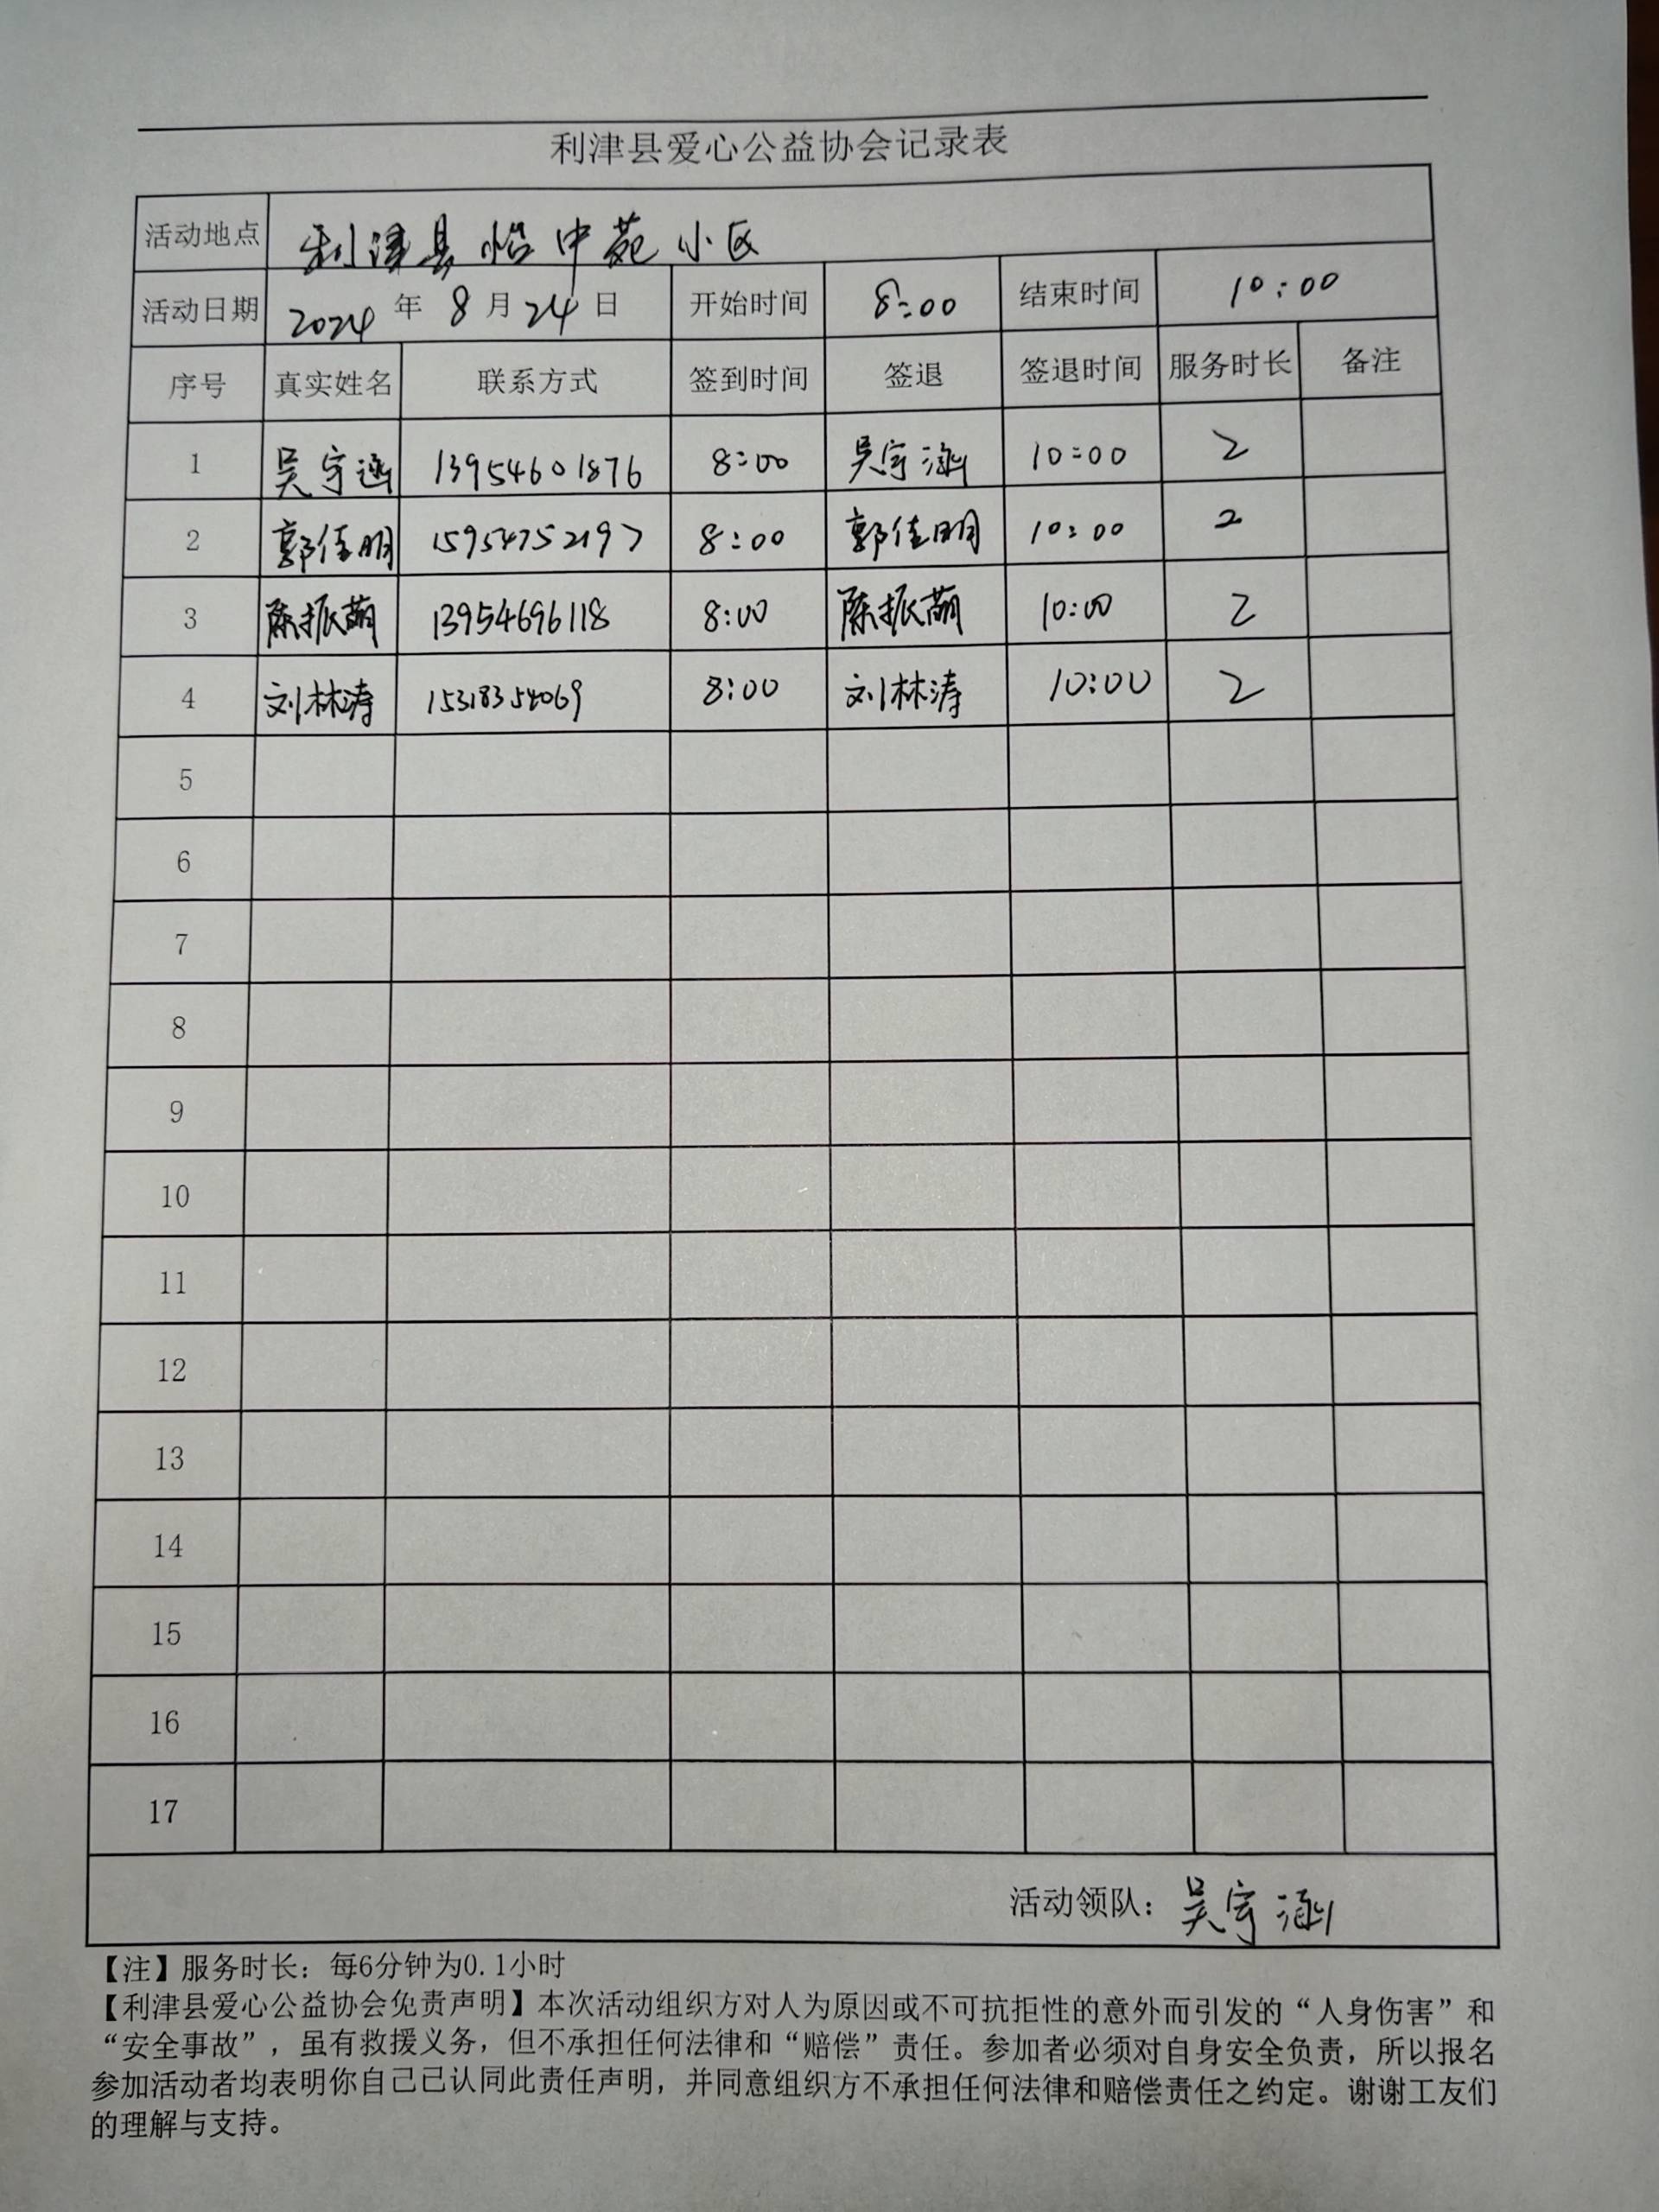 利津县爱心公益协会记录表
活动地点 利津县怡中苑小区
活动日期 2024 年 8 月 24 日 开始时间 8:00 结束时间 10:00
序号 真实姓名 联系方式 签到时间 签退 签退时间 服务时长 备注
1 吴宇涵 13954601876 8:00 吴宇涵 10:00 2
2 郭佳明 15954752197 8:00 郭佳明 10:00 2
3 陈振萌 13954696118 8:00 陈振萌 10:00 2
4 刘林涛 15318354069 8:00 刘林涛 10:00 2
5
6
7
8
9
10
11
12
13
14
15
16
17
活动领队：吴宇涵
【注】服务时长：每6分钟为0.1小时
【利津县爱心公益协会免责声明】本次活动组织方对人为原因或不可抗拒性的意外而引发的“人身伤害”和
“安全事故”，虽有救援义务，但不承担任何法律和“赔偿”责任。参加者必须对自身安全负责，所以报名
参加活动者均表明你自己已认同此责任声明，并同意组织方不承担任何法律和赔偿责任之约定。谢谢工友们
的理解与支持。